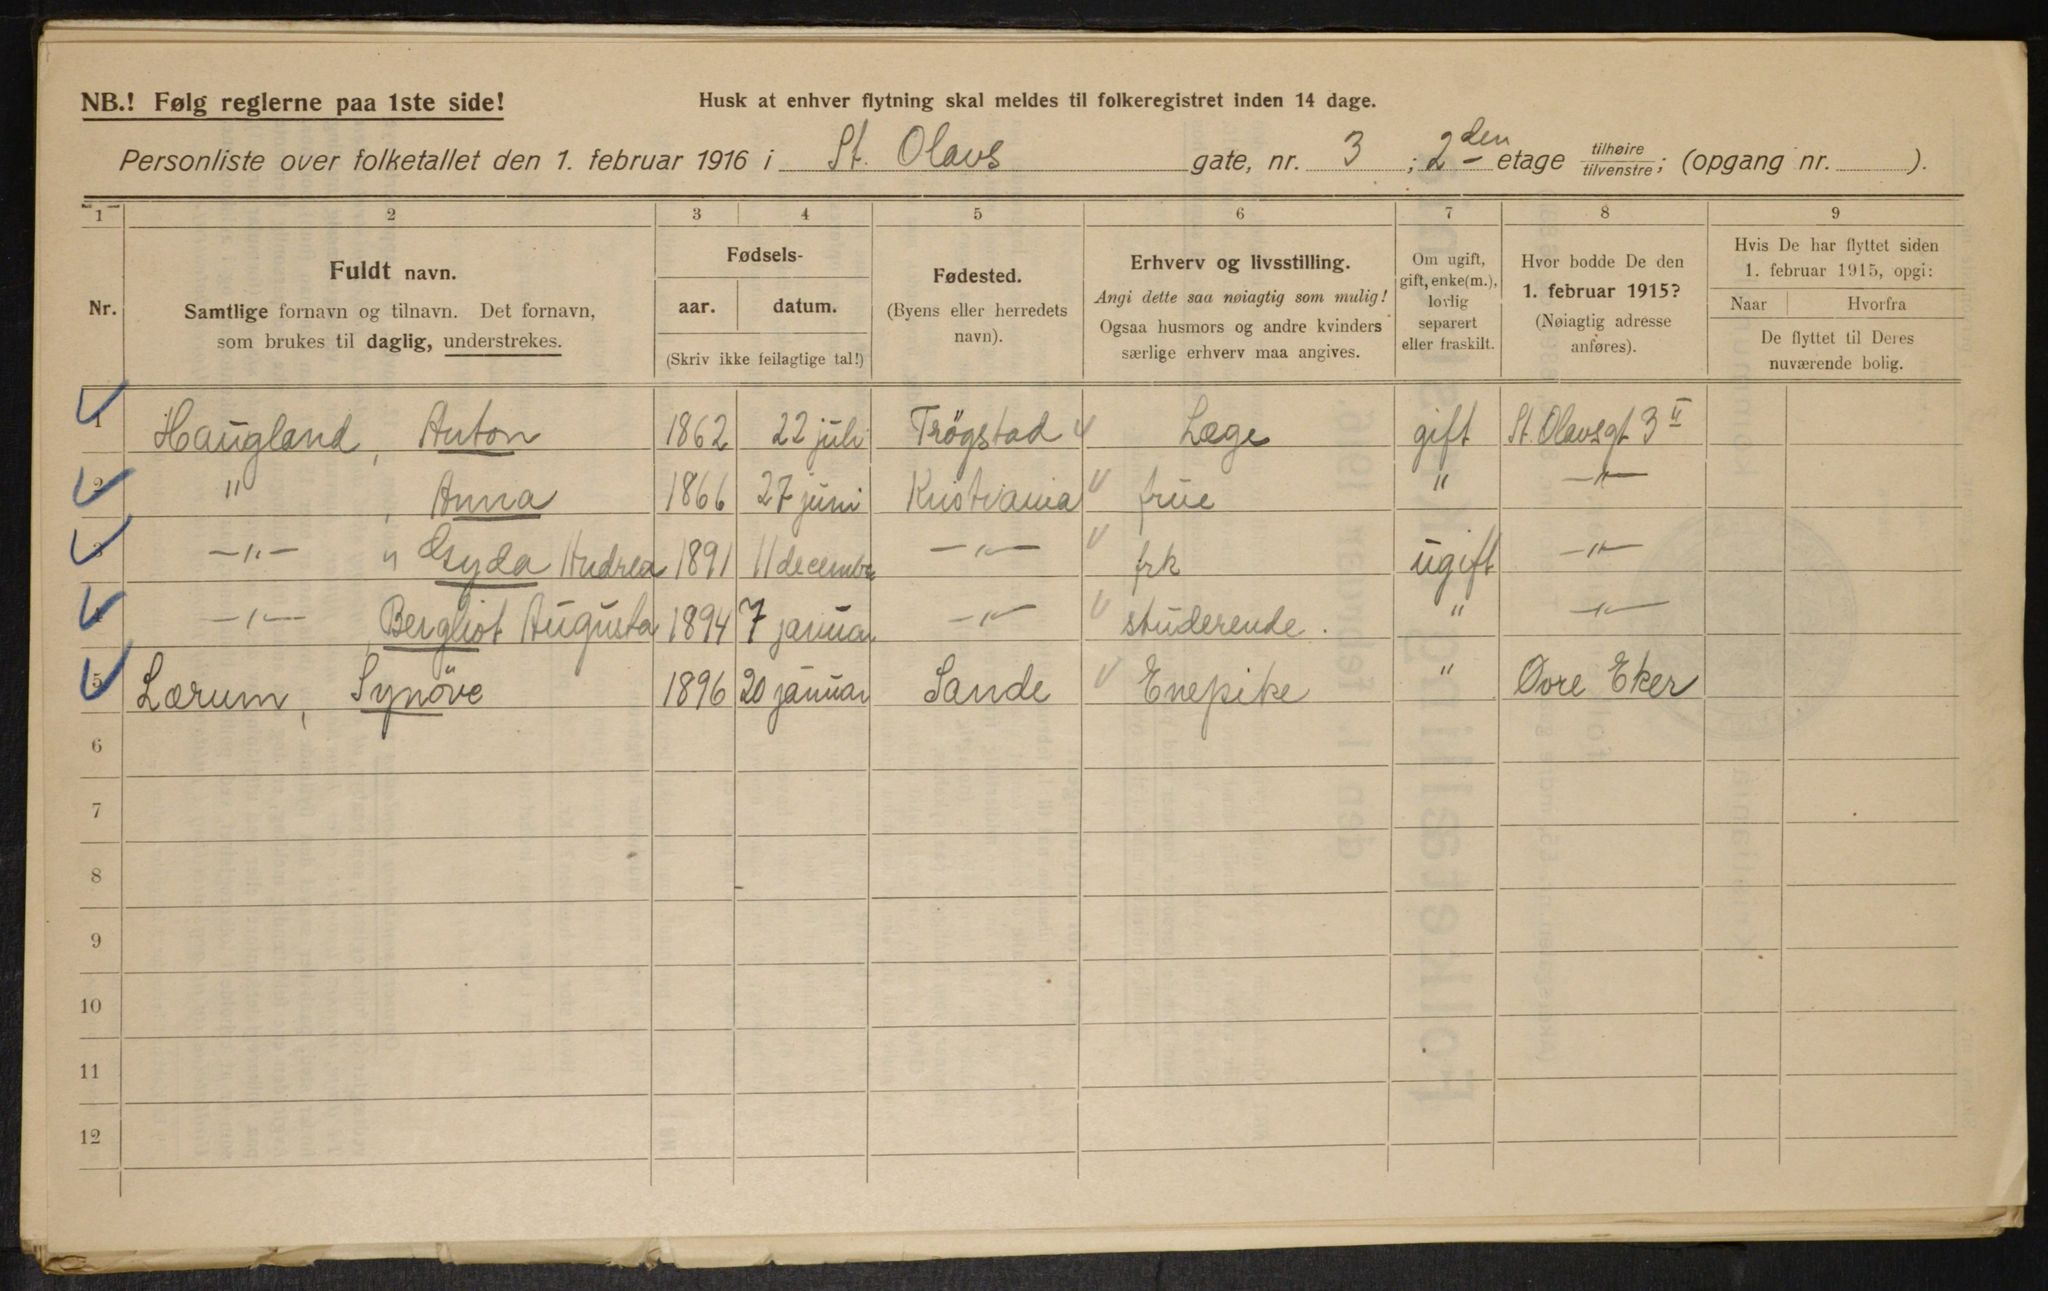 NB.! Følg reglerne paa 1ste side! Husk at enhver flytning skal meldes til folkeregistret inden 14 dage.
Personliste over folketallet den 1. februar 1916 i St. Olavs gate, nr. 3 ; 2den etage tilhøire/tilvenstre; (opgang nr. ).
1 2 3 4 5 6 7 8 9
Nr.
Fuldt navn.
Samtlige fornavn og tilnavn. Det fornavn,
som brukes til daglig, understrekes.
Fødsels-
aar. datum.
(Skriv ikke feilagtige tal!)
Fødested.
(Byens eller herredets
navn).
Erhverv og livsstilling.
Angi dette saa nøiagtig som mulig!
Ogsaa husmors og andre kvinders
særlige erhverv maa angives.
Om ugift,
gift, enke(m.),
lovlig
separert
eller fraskilt.
Hvor bodde De den
1. februar 1915?
(Nøiagtig adresse
anføres).
Hvis De har flyttet siden
1. februar 1915, opgi:
Naar Hvorfra
De flyttet til Deres
nuværende bolig.
1 Haugland, Anton 1862 22 juli Trögstad Læge gift St. Olavsgt 3 II
2 " , Anna 1866 27 juni Kristiania frue " —"—
3 —"— " Gyda Andrea 1891 11 decembr —"— frk ugift —"—
4 —"— Bergliot Augusta 1894 7 januar —"— studerende. " —"—
5 Lærum, Synöve 1896 20 januar Sande Enepike " Øvre Eker
6
7
8
9
10
11
12